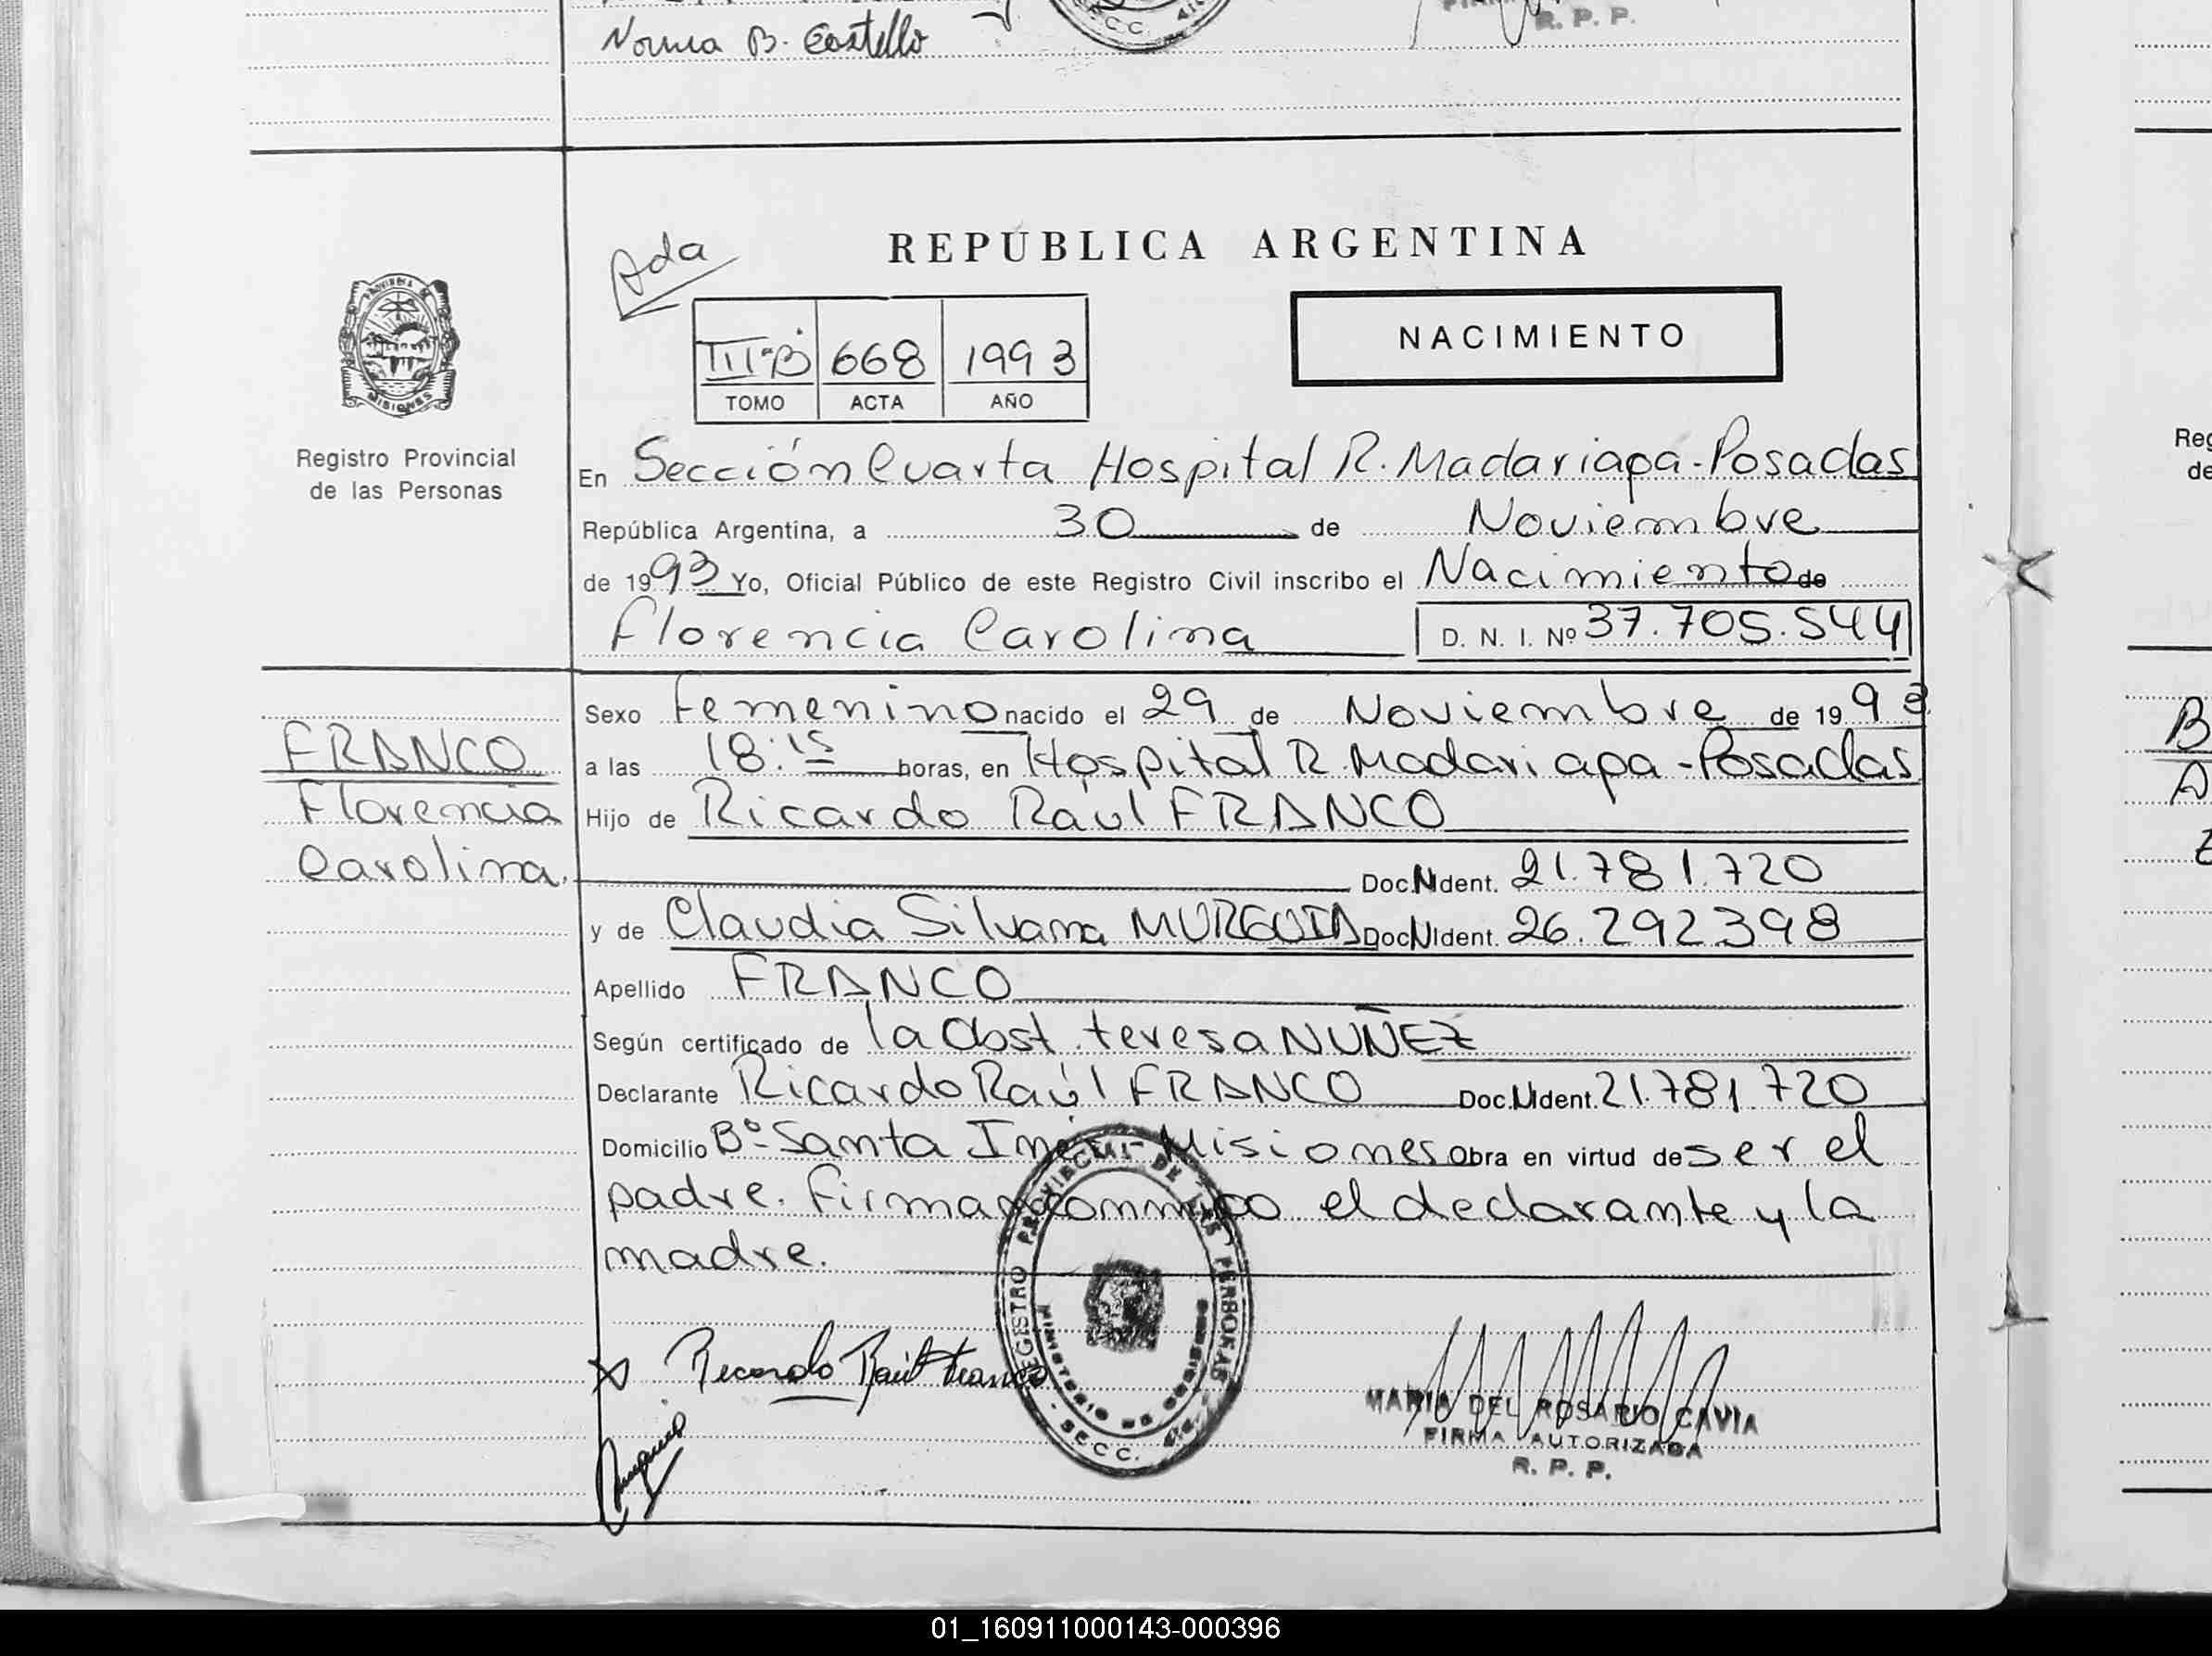 Norma B. Costello
R. P. P.
REPÚBLICA ARGENTINA
Ada
NACIMIENTO
III-B 668 1993
TOMO ACTA AÑO
PROVINCIA DE
MISIONES
Registro Provincial
de las Personas
En Sección Cuarta Hospital R. Madariaga - Posadas
República Argentina, a 30 de Noviembre
de 1993 Yo, Oficial Público de este Registro Civil inscribo el Nacimiento de
Florencia Carolina D. N. I. Nº 37.705.544
Sexo Femenino nacido el 29 de Noviembre de 1993
a las 18:15 horas, en Hospital R. Madariaga - Posadas
Hijo de Ricardo Raúl FRANCO
Doc.N Ident. 21.781.720
y de Claudia Silvana MURGUIA Doc N Ident. 26.292398
Apellido FRANCO
Según certificado de la Obst. teresa NUÑEZ
Declarante Ricardo Raúl FRANCO Doc.N Ident. 21.781.720
Domicilio Bº Santa Inés - Misiones Obra en virtud de ser el
padre. Firman conmigo el declarante y la
madre.
FRANCO
Florencia
Carolina.
REGISTRO PROVINCIAL DE LAS PERSONAS
MINISTERIO DE GOBIERNO
SECC.
Ricardo Raúl Franco
MARIA DEL ROSARIO CAVIA
FIRMA AUTORIZADA
R. P. P.
Reg
de
B
A
01_160911000143-000396